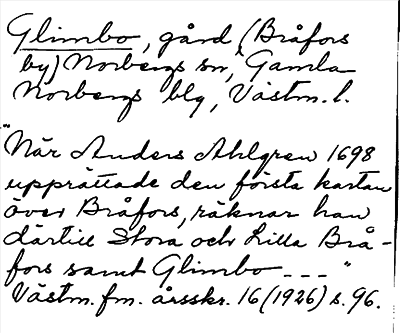 Glimbo, gård (Bråfors
by) Norbergs sn, Gamla
Norbergs blg, Västm. l.
"När Anders Ahlgren 1698
upprättade den första kartan
över Bråfors, räknar han
därtill Stora och Lilla Brå-
fors samt Glimbo - - - "
Västm. fm. årsskr. 16 (1926) s. 96.